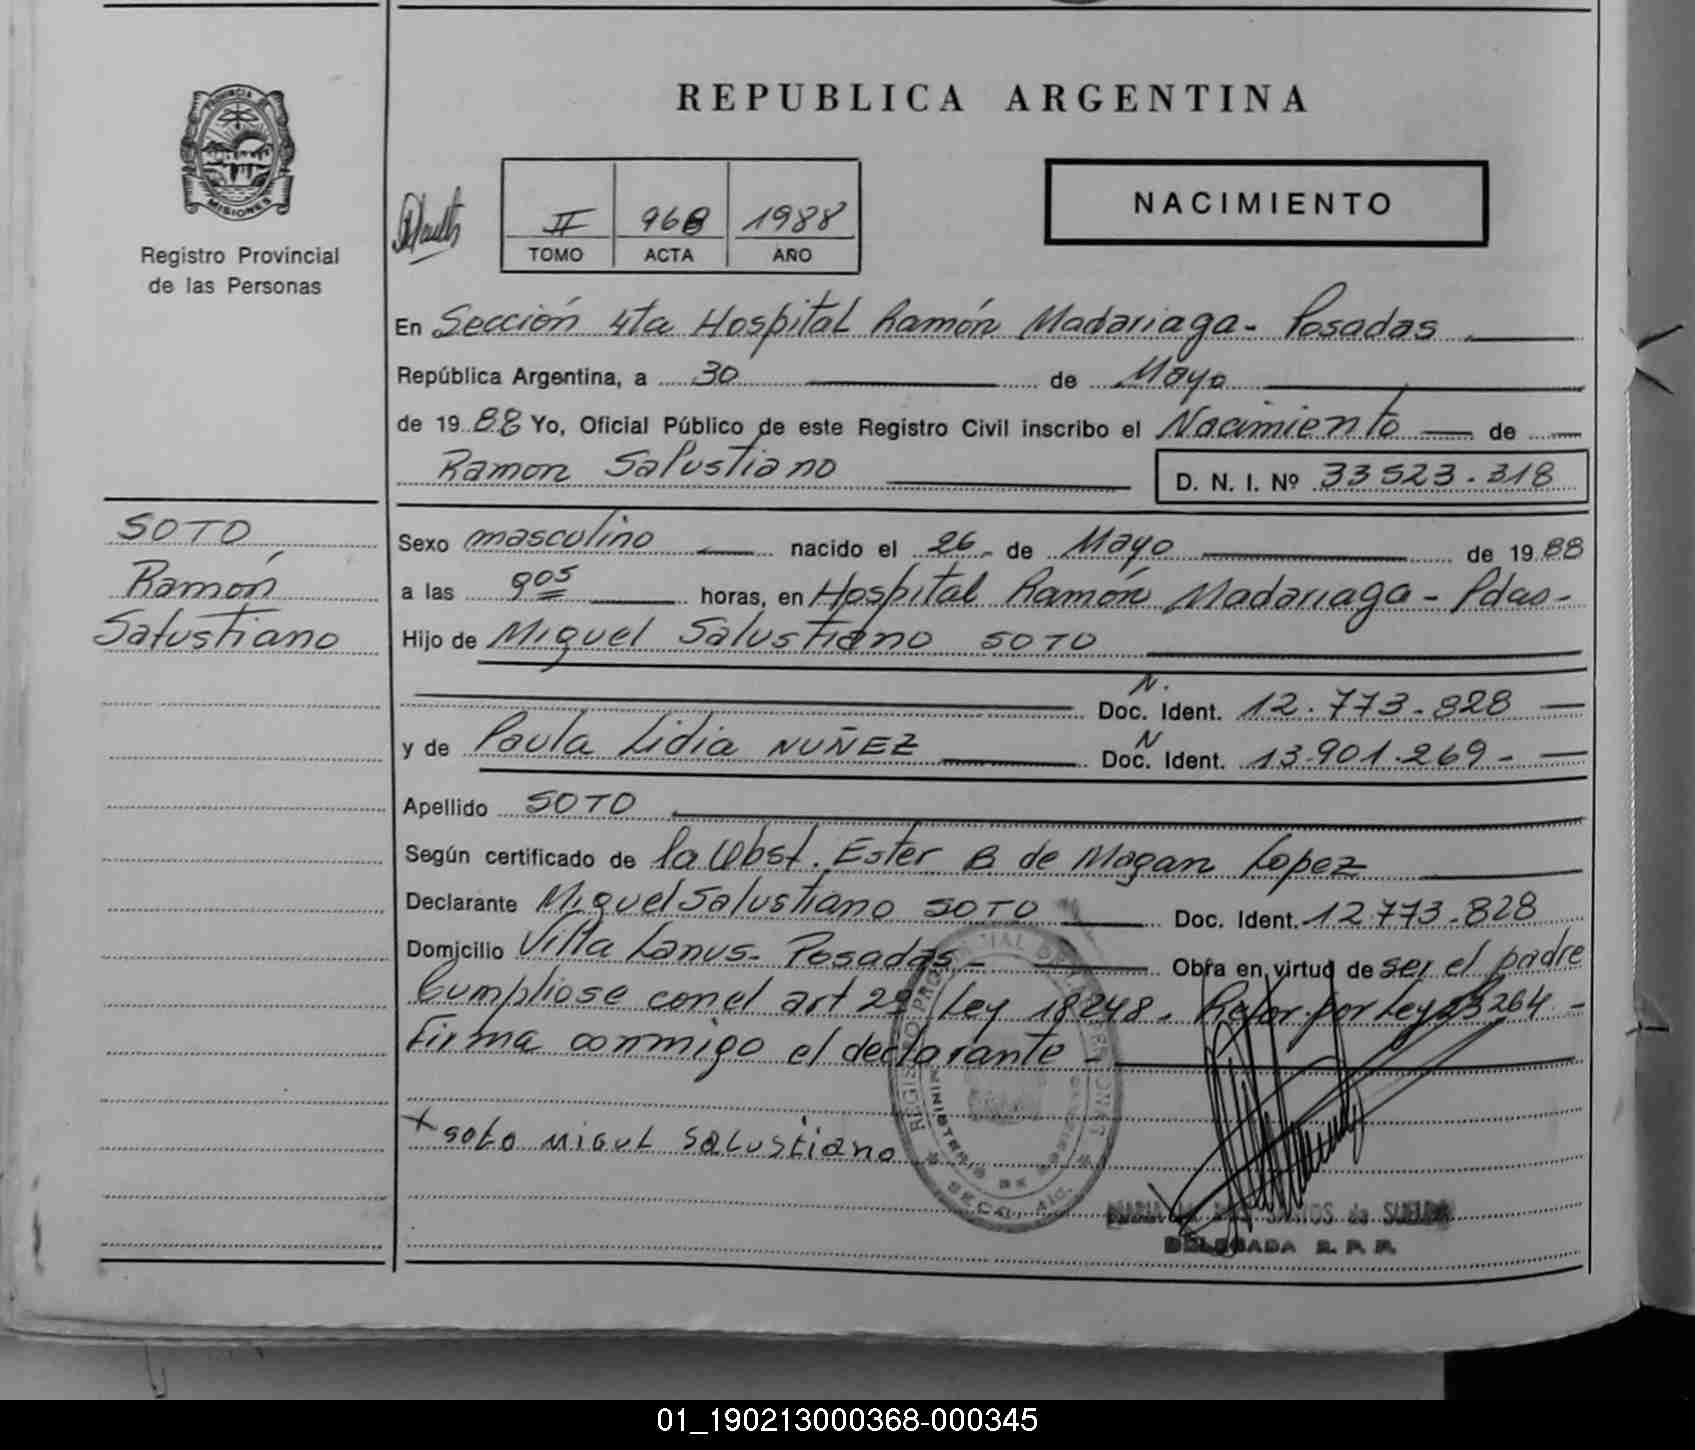 REPUBLICA ARGENTINA
PROVINCIA DE
MISIONES
Registro Provincial
de las Personas
II 968 1988
TOMO ACTA AÑO
NACIMIENTO
En Sección 4ta Hospital Ramón Madariaga - Posadas
República Argentina, a 30 de Mayo
de 1988 Yo, Oficial Público de este Registro Civil inscribo el Nacimiento de
Ramon Salustiano
D. N. I. Nº 33523.318
SOTO
Ramón
Salustiano
Sexo masculino nacido el 26 de Mayo de 1988
a las 9 05 horas, en Hospital Ramón Madariaga - Pdas -
Hijo de Miguel Salustiano SOTO
N.
Doc. Ident. 12.773.828
N
y de Paula Lidia NUÑEZ Doc. Ident. 13.901.269 -
Apellido SOTO
Según certificado de la Obst. Ester B de Mogan Lopez
Declarante Miguel Salustiano SOTO Doc. Ident. 12773.828
Domicilio Villa Lanus - Posadas - Obra en virtud de ser el padre
Cumpliose con el art 29 Ley 18248. Refor. por Ley 23264 -
Firma conmigo el declarante -
+ soto Miguel Salustiano
DELEGADA R. P. P.
01_190213000368-000345